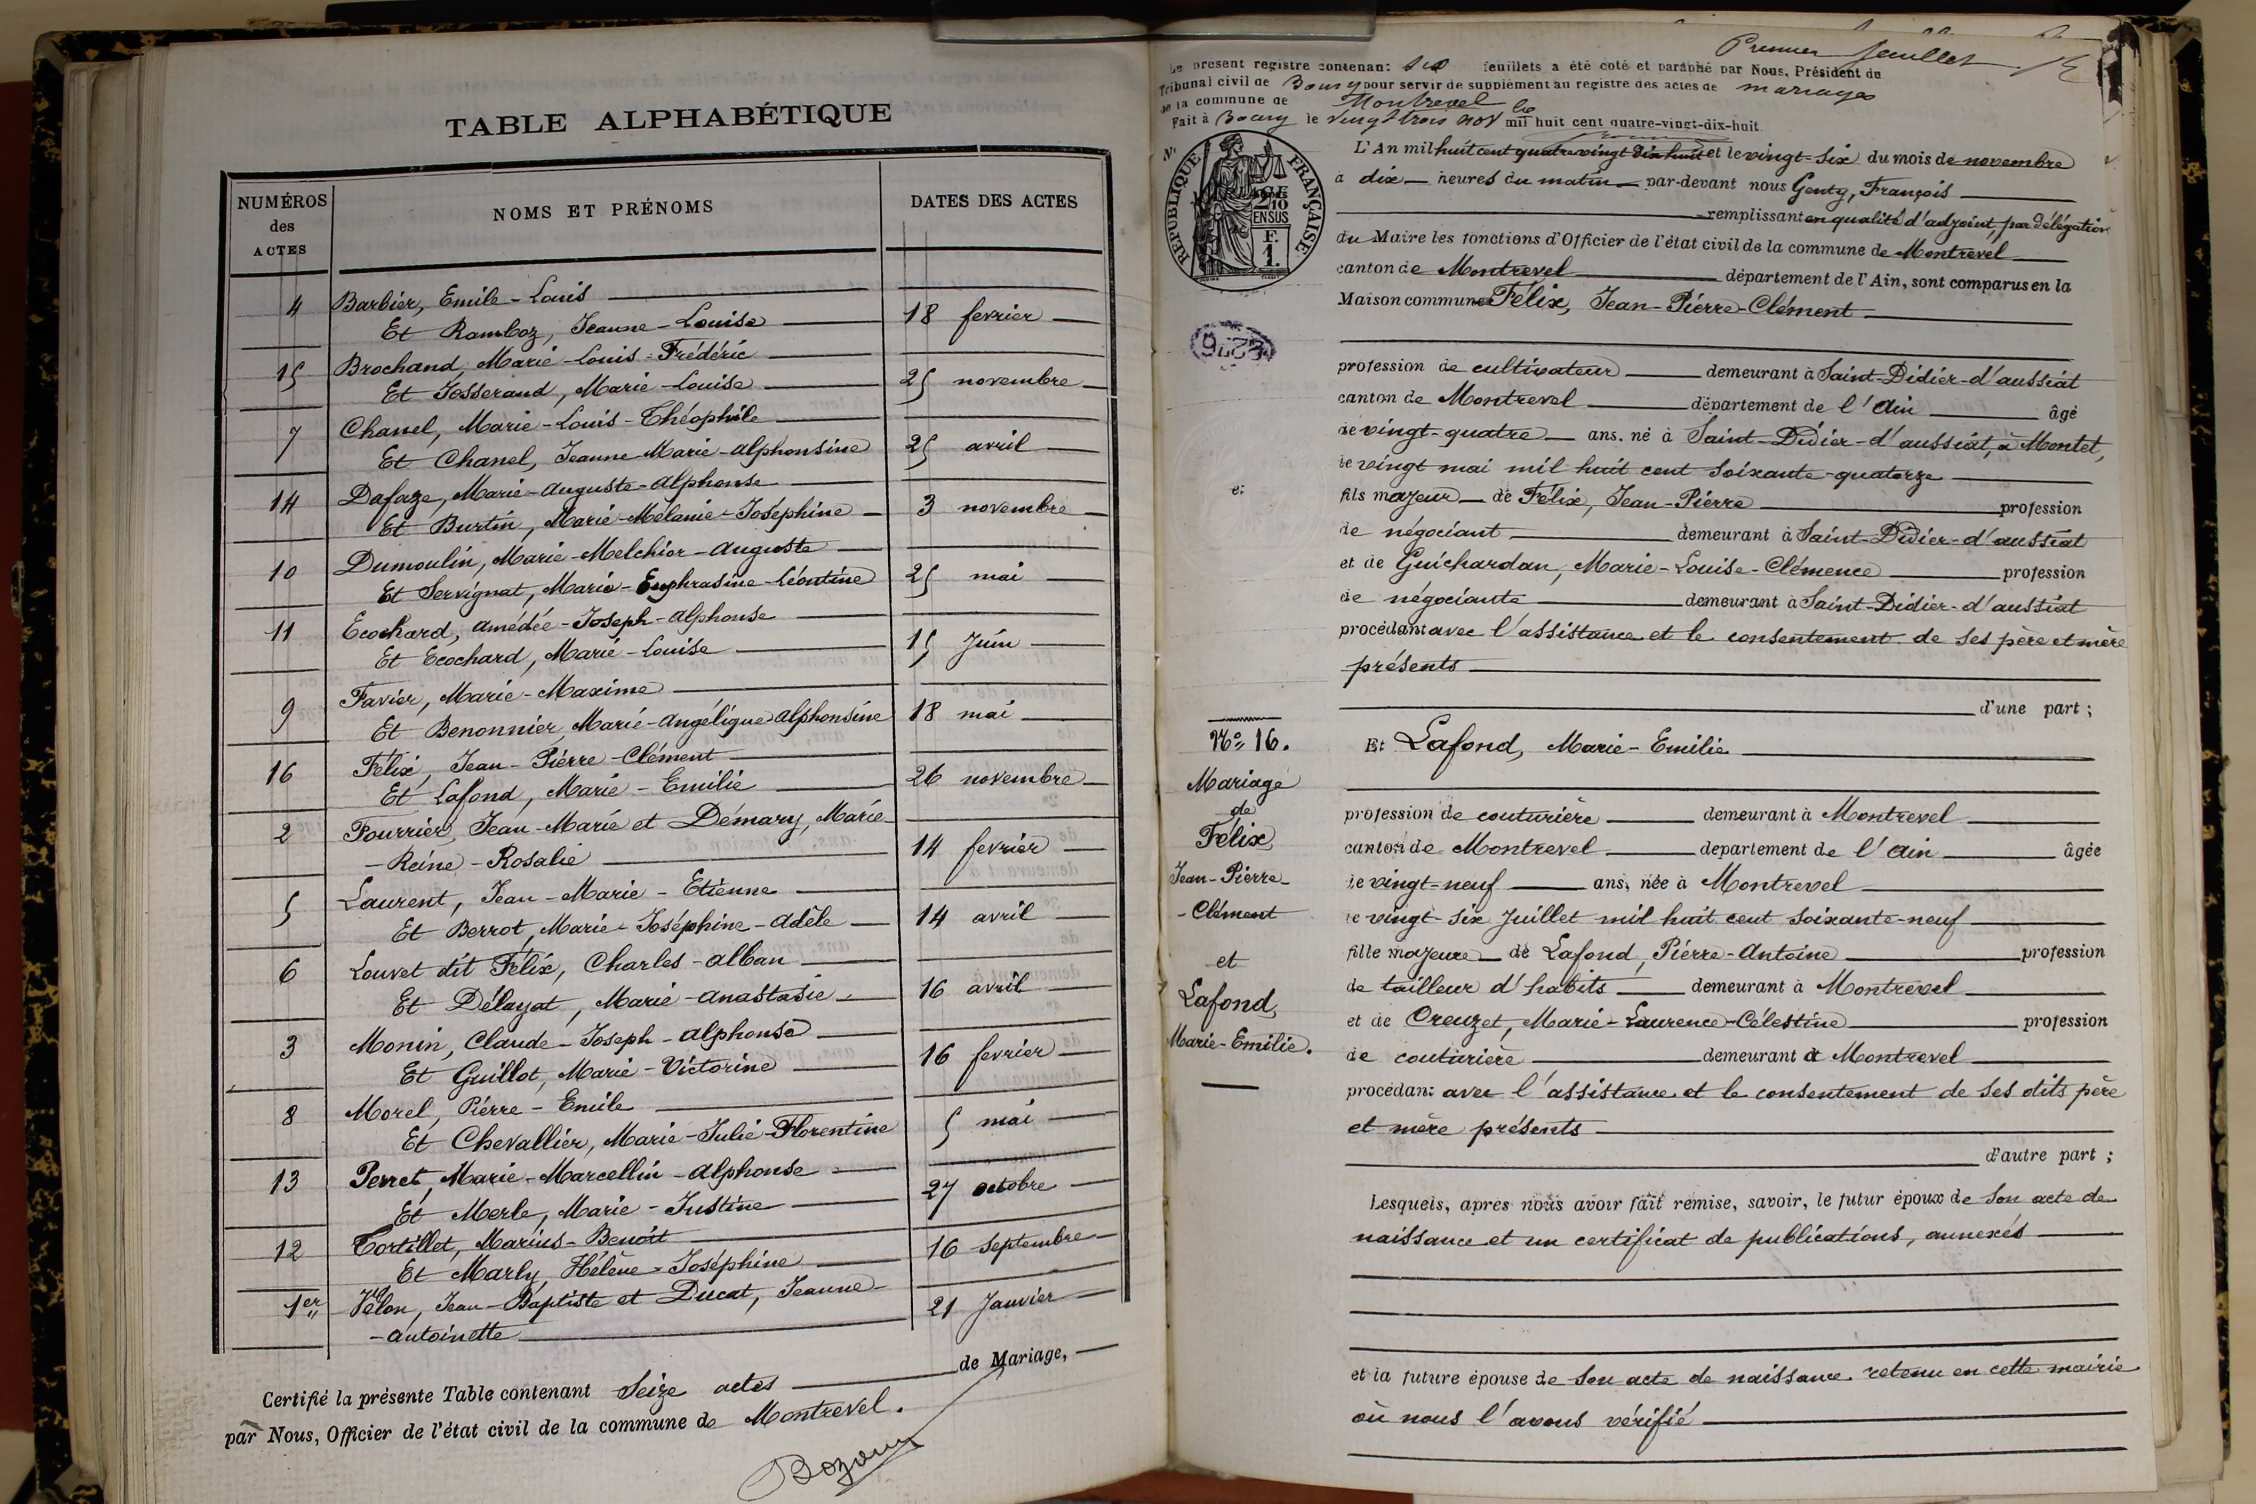 TABLE ALPHABÉTIQUE
NUMÉROS des ACTES
NOMS ET PRÉNOMS
DATES DES ACTES
4 Barbier, Emile-Louis
Et Ramboz, Jeanne-Louise 18 fevrier
15 Brochand, Marie-Louis-Frédéric
Et Josserand, Marie-Louise 25 novembre
7 Chanel, Marie-Louis-Théophile
Et Chanel, Jeanne-Marie-alphonsine 25 avril
14 Dafaze, Marie-auguste-alphonse
Et Burtin, Marie-Mélanie-Joséphine 3 novembre
10 Dumoulin, Marie-Melchior-auguste
Et Servignat, Marie-Euphrasine-Léontine 25 mai
11 Ecochard, amédée-Joseph-alphonse
Et Ecochard, Marie-Louise 15 Juin
9 Favier, Marie-Maxime
Et Benonnier, Marie-angélique alphonsine 18 mai
16 Félix, Jean-Pierre-Clément
Et Lafond, Marie-Emilie 26 novembre
2 Fourrier, Jean-Marie et Démary, Marie-
-Reine-Rosalie 14 fevrier
5 Laurent, Jean-Marie-Etienne
Et Berrot, Marie-Joséphine-adèle 14 avril
6 Louvet dit Félix, Charles-alban
Et Délayat, Marie-anastasie 16 avril
3 Monin, Claude-Joseph-alphonse
Et Guillot, Marie-Victorine 16 fevrier
8 Morel, Pierre-Emile
Et Chevallier, Marie-Julie-Florentine 5 mai
13 Perret, Marie-Marcellin-alphonse
Et Merle, Marie-Justine 27 octobre
12 Tortillet, Marius-Benoît
Et Marly, Hélène-Joséphine 16 septembre
1er Vélon, Jean-Baptiste et Ducat, Jeanne-
-antoinette 21 Janvier
Certifié la présente Table contenant seize actes de Mariage,
par Nous, Officier de l'état civil de la commune de Montrevel.
Premier feuillet
Le présent registre contenant six feuillets a été coté et paraphé par Nous, Président du
Tribunal civil de Bourg pour servir de supplément au registre des actes de mariages
de la commune de Montrevel
Fait à Bourg le vingt trois nov bre mil huit cent quatre-vingt-dix-huit
RÉPUBLIQUE FRANÇAISE
2/10 EN SUS
F. 1.
L'An mil huit cent quatre vingt dix huit et le vingt-six du mois de novembre
à dix heures du matin par-devant nous Genty, François
remplissant en qualité d'adjoint, par délégation
du Maire les fonctions d'Officier de l'état civil de la commune de Montrevel
canton de Montrevel département de l'Ain, sont comparus en la
Maison commune Félix, Jean-Pierre-Clément
profession de cultivateur demeurant à Saint-Didier-d'aussiat
canton de Montrevel département de l'ain âgé
de vingt-quatre ans, né à Saint-Didier-d'aussiat, à Montet,
le vingt mai mil huit cent soixante-quatorze
fils majeur de Félix, Jean-Pierre profession
de négociant demeurant à Saint-Didier-d'aussiat
et de Guichardan, Marie-Louise-Clémence profession
de négociante demeurant à Saint-Didier-d'aussiat
procédant avec l'assistance et le consentement de ses père et mère
présents
d'une part;
No 16.
Mariage
de
Félix,
Jean-Pierre-
-Clément
et
Lafond,
Marie-Emilie.
Et Lafond, Marie-Emilie
profession de couturière demeurant à Montrevel
canton de Montrevel département de l'ain âgée
de vingt-neuf ans, née à Montrevel
le vingt-six Juillet mil huit cent soixante-neuf
fille majeure de Lafond, Pierre-Antoine profession
de tailleur d'habits demeurant à Montrevel
et de Creuzet, Marie-Laurence-Célestine profession
de couturière demeurant à Montrevel
procédant avec l'assistance et le consentement de ses dits père
et mère présents
d'autre part;
Lesquels, après nous avoir fait remise, savoir, le futur époux de son acte de
naissance et un certificat de publications, annexés
et la future épouse de son acte de naissance retenu en cette mairie
où nous l'avons vérifié